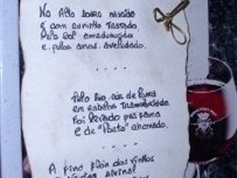 No Alto Douro nascido
e com carinho tratado
Pelo Sol amadurecido
e pelos anos aveludado.
Pelo Rio, cor de
em rabelos transportado
Foi levado pra fama
e de "Porto" chamado.
A fina flor dos vinhos